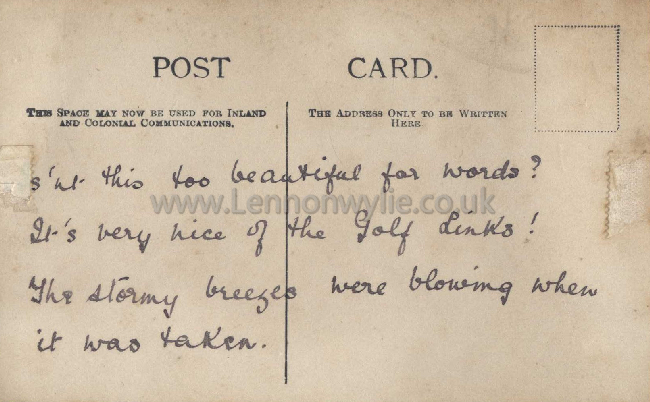 POST CARD.
THIS SPACE MAY NOW BE USED FOR INLAND
AND COLONIAL COMMUNICATIONS.
THE ADDRESS ONLY TO BE WRITTEN
HERE
s'nt this too beautiful for words?
www.Lennonwylie.co.uk
It's very nice of the Golf Links!
The stormy breezes were blowing when
it was taken.